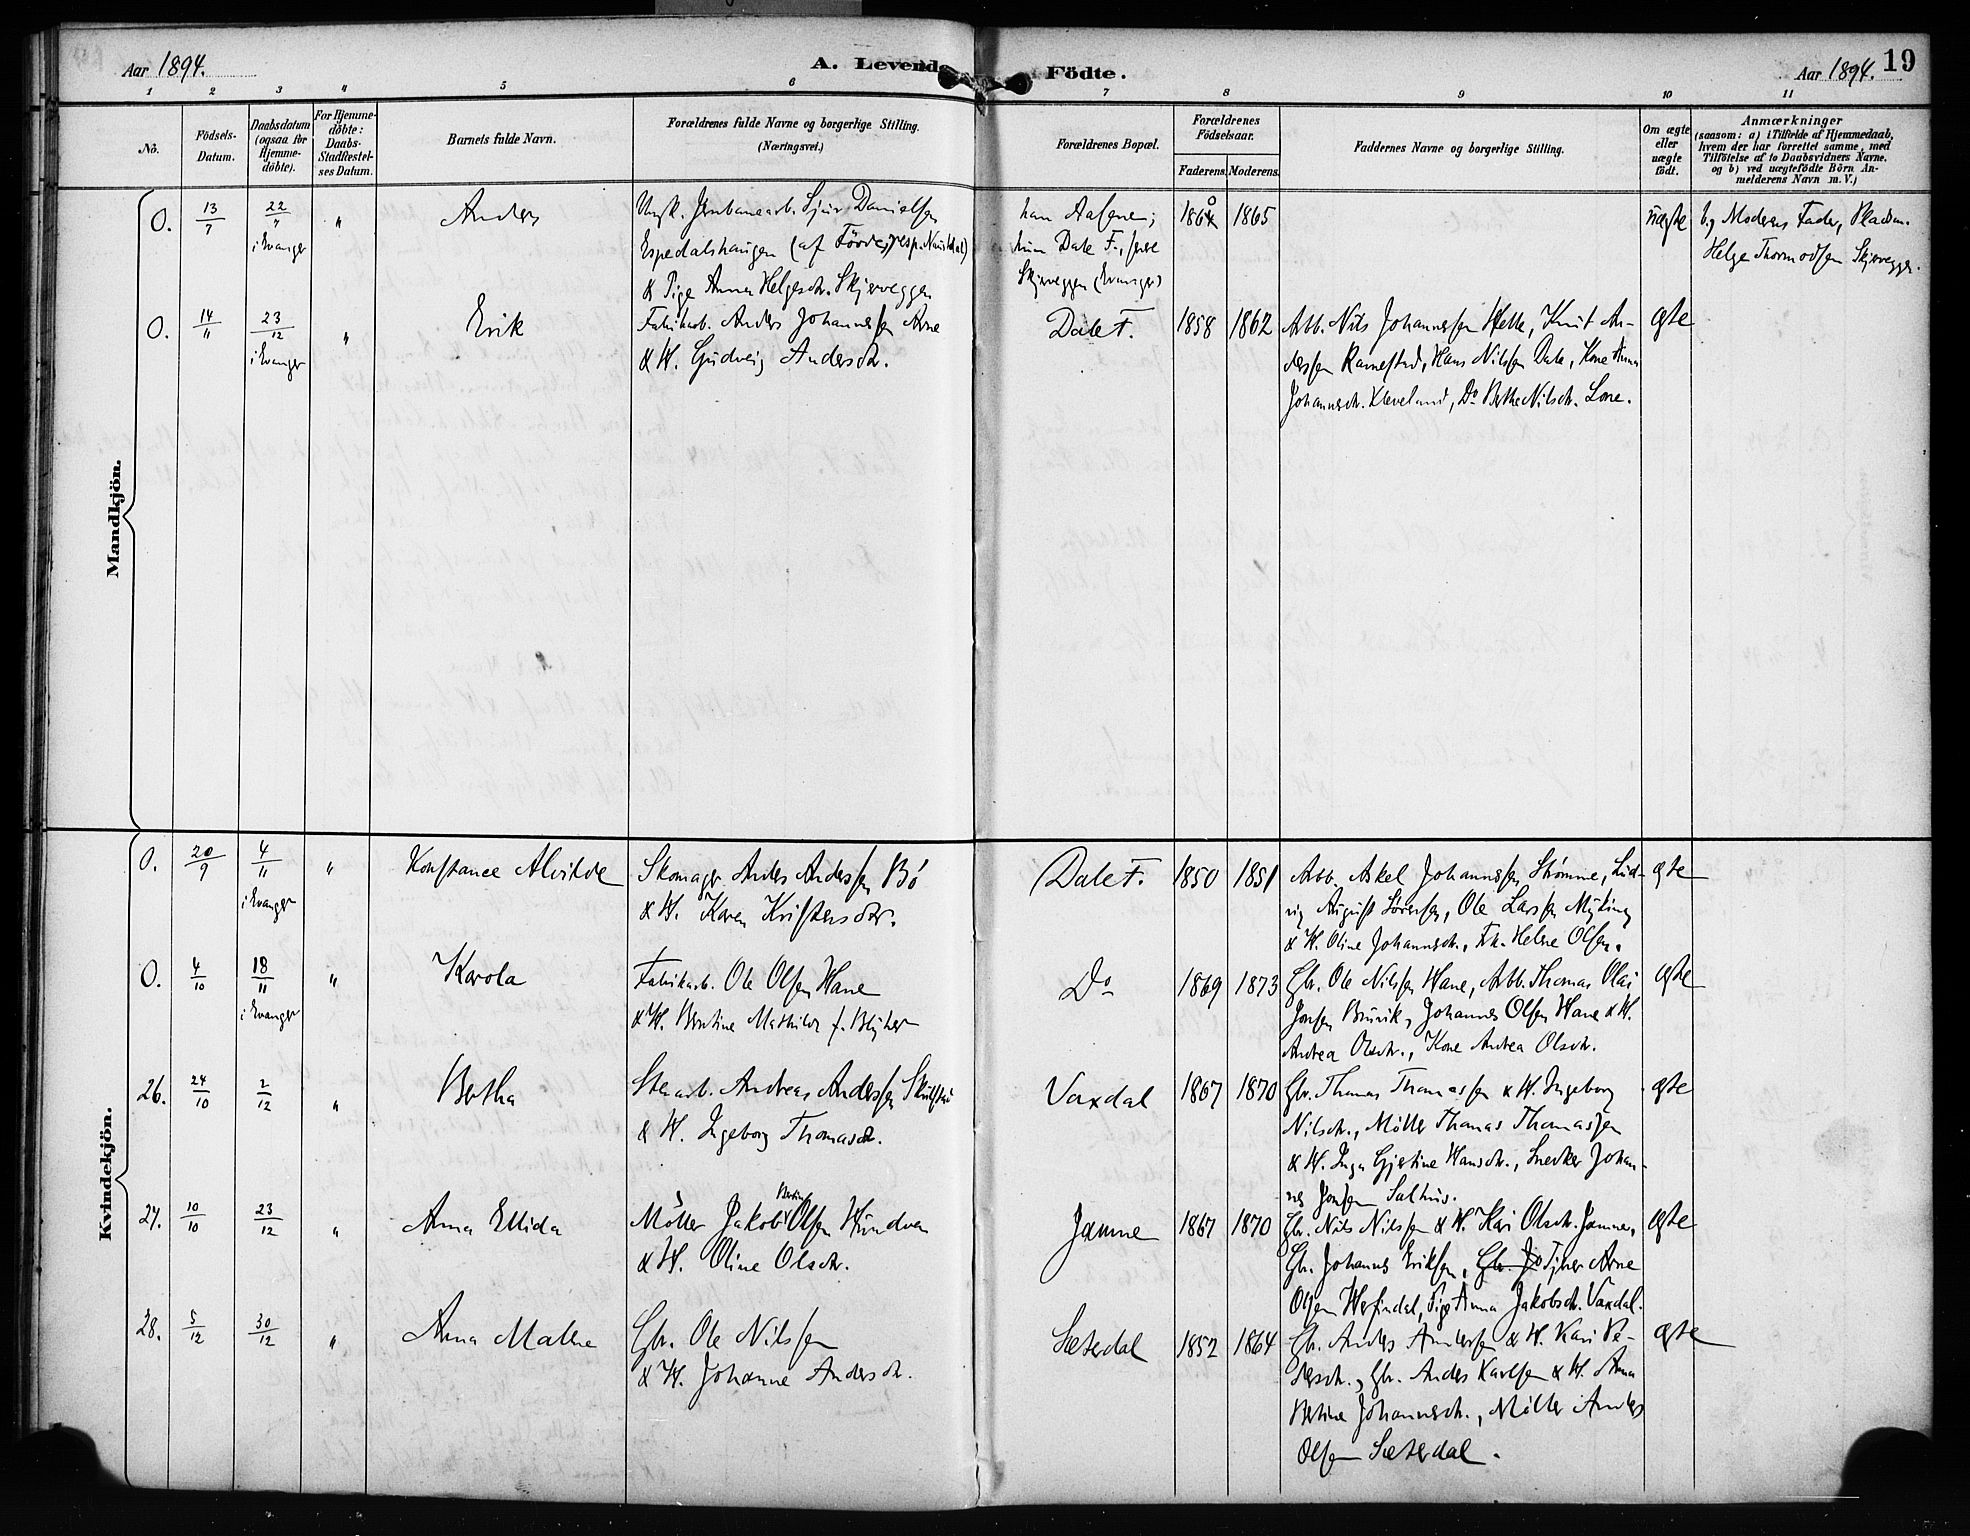 Aar 1894.
A. Levende Födte.
Aar 1894. 19
1 2 3 4 5 6 7 8 9 10 11
No.
Födsels-
Datum.
Daabsdatum
(ogsaa for
Hjemme-
döbte).
For Hjemme-
döbte:
Daabs-
Stadfæstel-
ses Datum.
Barnets fulde Navn.
Forældrenes fulde Navne og borgerlige Stilling.
(Næringsvei.)
Forældrenes Bopæl.
Forældrenes
Födselsaar.
Faderens. Moderens.
Faddernes Navne og borgerlige Stilling.
Om ægte
eller
uægte
födt.
Anmærkninger
(saasom: a) i Tilfælde af Hjemmedaab,
hvem der har forrettet samme, med
Tilföielse af to Daabsvidners Navne.
og b) ved uægtefödte Börn An-
melderens Navn m. V.)
Mandkjön.
0. 13/7 22/7 " Anders
i Evanger
Ungk. Jernbanearb. Sjur Danielsen
Espedalshaugen (af Förde, resp. Naustdal)
& Pige Anna Helgesdtr. Skjerveggen
han Aasene;
hun Dale F., före
Skjerveggen (Evanger)
1865
uægte
b, Moderens Fader, Pladsm.
Helge Thormodsen Skjerveggen.
0. 14/11 23/12 " Erik
i Evanger
Fabrikarb. Anders Johannessen Arne
& H. Gudveig Andersdtr.
Dale F. 1858 1862
Arb. Nils Johannessen Helle, Knut An-
dersen Ramestad, Hans Nilsen Dale, Kone Anna
Johannesdtr. Kleveland, Do Berthe Nilsdtr. Lone.
ægte
Kvindekjön.
0. 20/9 4/11 " Konstance Alvilde
i Evanger
Skomager Anders Andersen Bö
& H. Karen Kristensdtr.
Dale F. 1850 1851
Arb. Askel Johannessen Strömme, Lud-
vig August Sörensen, Ole Larsen Myking
& H. Oline Johannesdtr., Frk. Helene Olsen.
ægte
0. 4/10 18/11 " Karola
i Evanger
Fabrikarb. Ole Olsen Hane
& H. Bertine Mathilde f. Blyher
Do 1869 1873
Gbr. Ole Nilsen Hane, Arb. Thomas Olai
Jonsen Bruvik, Johannes Olsen Hane & H.
Andrea Olsdtr., Kone Andrea Olsdtr.
ægte
26. 24/10 2/12 " Bertha
Stenarb. Andreas Andersen
& H. Ingeborg Thomasdtr.
Vaxdal 1867 1870
Gbr. Thomas Thomassen & H. Ingeborg
Nilsdtr., Möller Thomas Thomassen
& H. Inga Gjertine Hansdtr., Snedker Johan-
nes Jonsen Salhus.
ægte
27. 10/10 23/12 " Anna Ellida
Möller Jakob Olsen Hundven
& H. Oline Olsdtr.
Jamne 1867 1870
Gbr. Nils Nilsen & H. Kari Olsdtr. Jamne,
Gbr. Johannes Eriksen, Gbr. Jo Tjener Arne
Olsen Herfindal, Pige Anna Jakobsdtr. Vaxdal.
ægte
28. 5/12 30/12 " Anna Malene
Gbr. Ole Nilsen
& H. Johanne Andersdtr.
Sæterdal 1852 1864
Gbr. Anders Andersen & H. Kari Pe-
dersdtr., Gbr. Anders Karlsen & H. Anna
Bertine Johannesdtr., Möller Anders
Olsen Sæterdal.
ægte